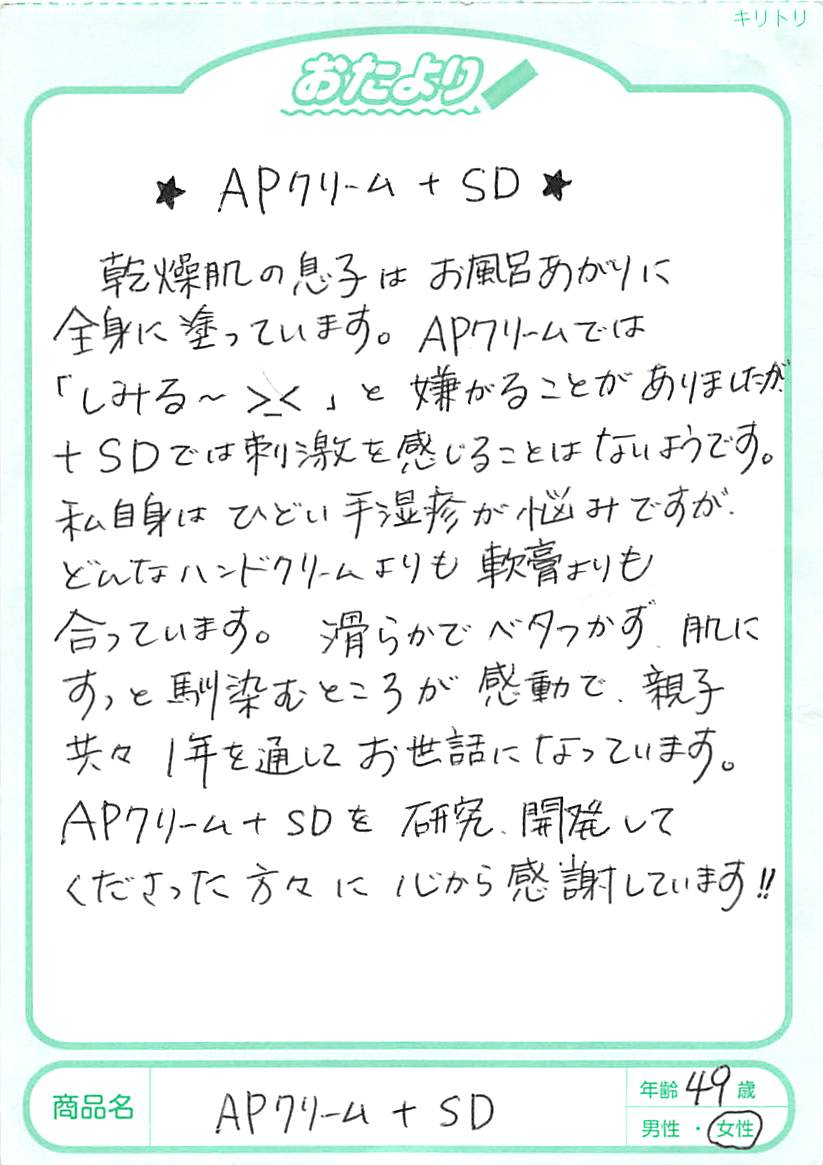 キリトリ
おたより
★ APクリーム + SD ★
乾燥肌の息子は お風呂あがりに
全身に塗っています。APクリームでは
「しみる～ >_< 」と 嫌がることが ありましたが
+ SDでは刺激を感じることは ないようです。
私自身は ひどい 手湿疹が 悩みですが、
どんなハンドクリームよりも 軟膏よりも
合っています。 滑らかで ベタつかず、肌に
すっと 馴染むところが 感動で、親子
共々 1年を通して お世話になっています。
APクリーム+ SDを 研究、開発して
くださった 方々に 心から感謝しています!!
商品名 APクリーム + SD
年齢 49 歳
男性 ・ 女性